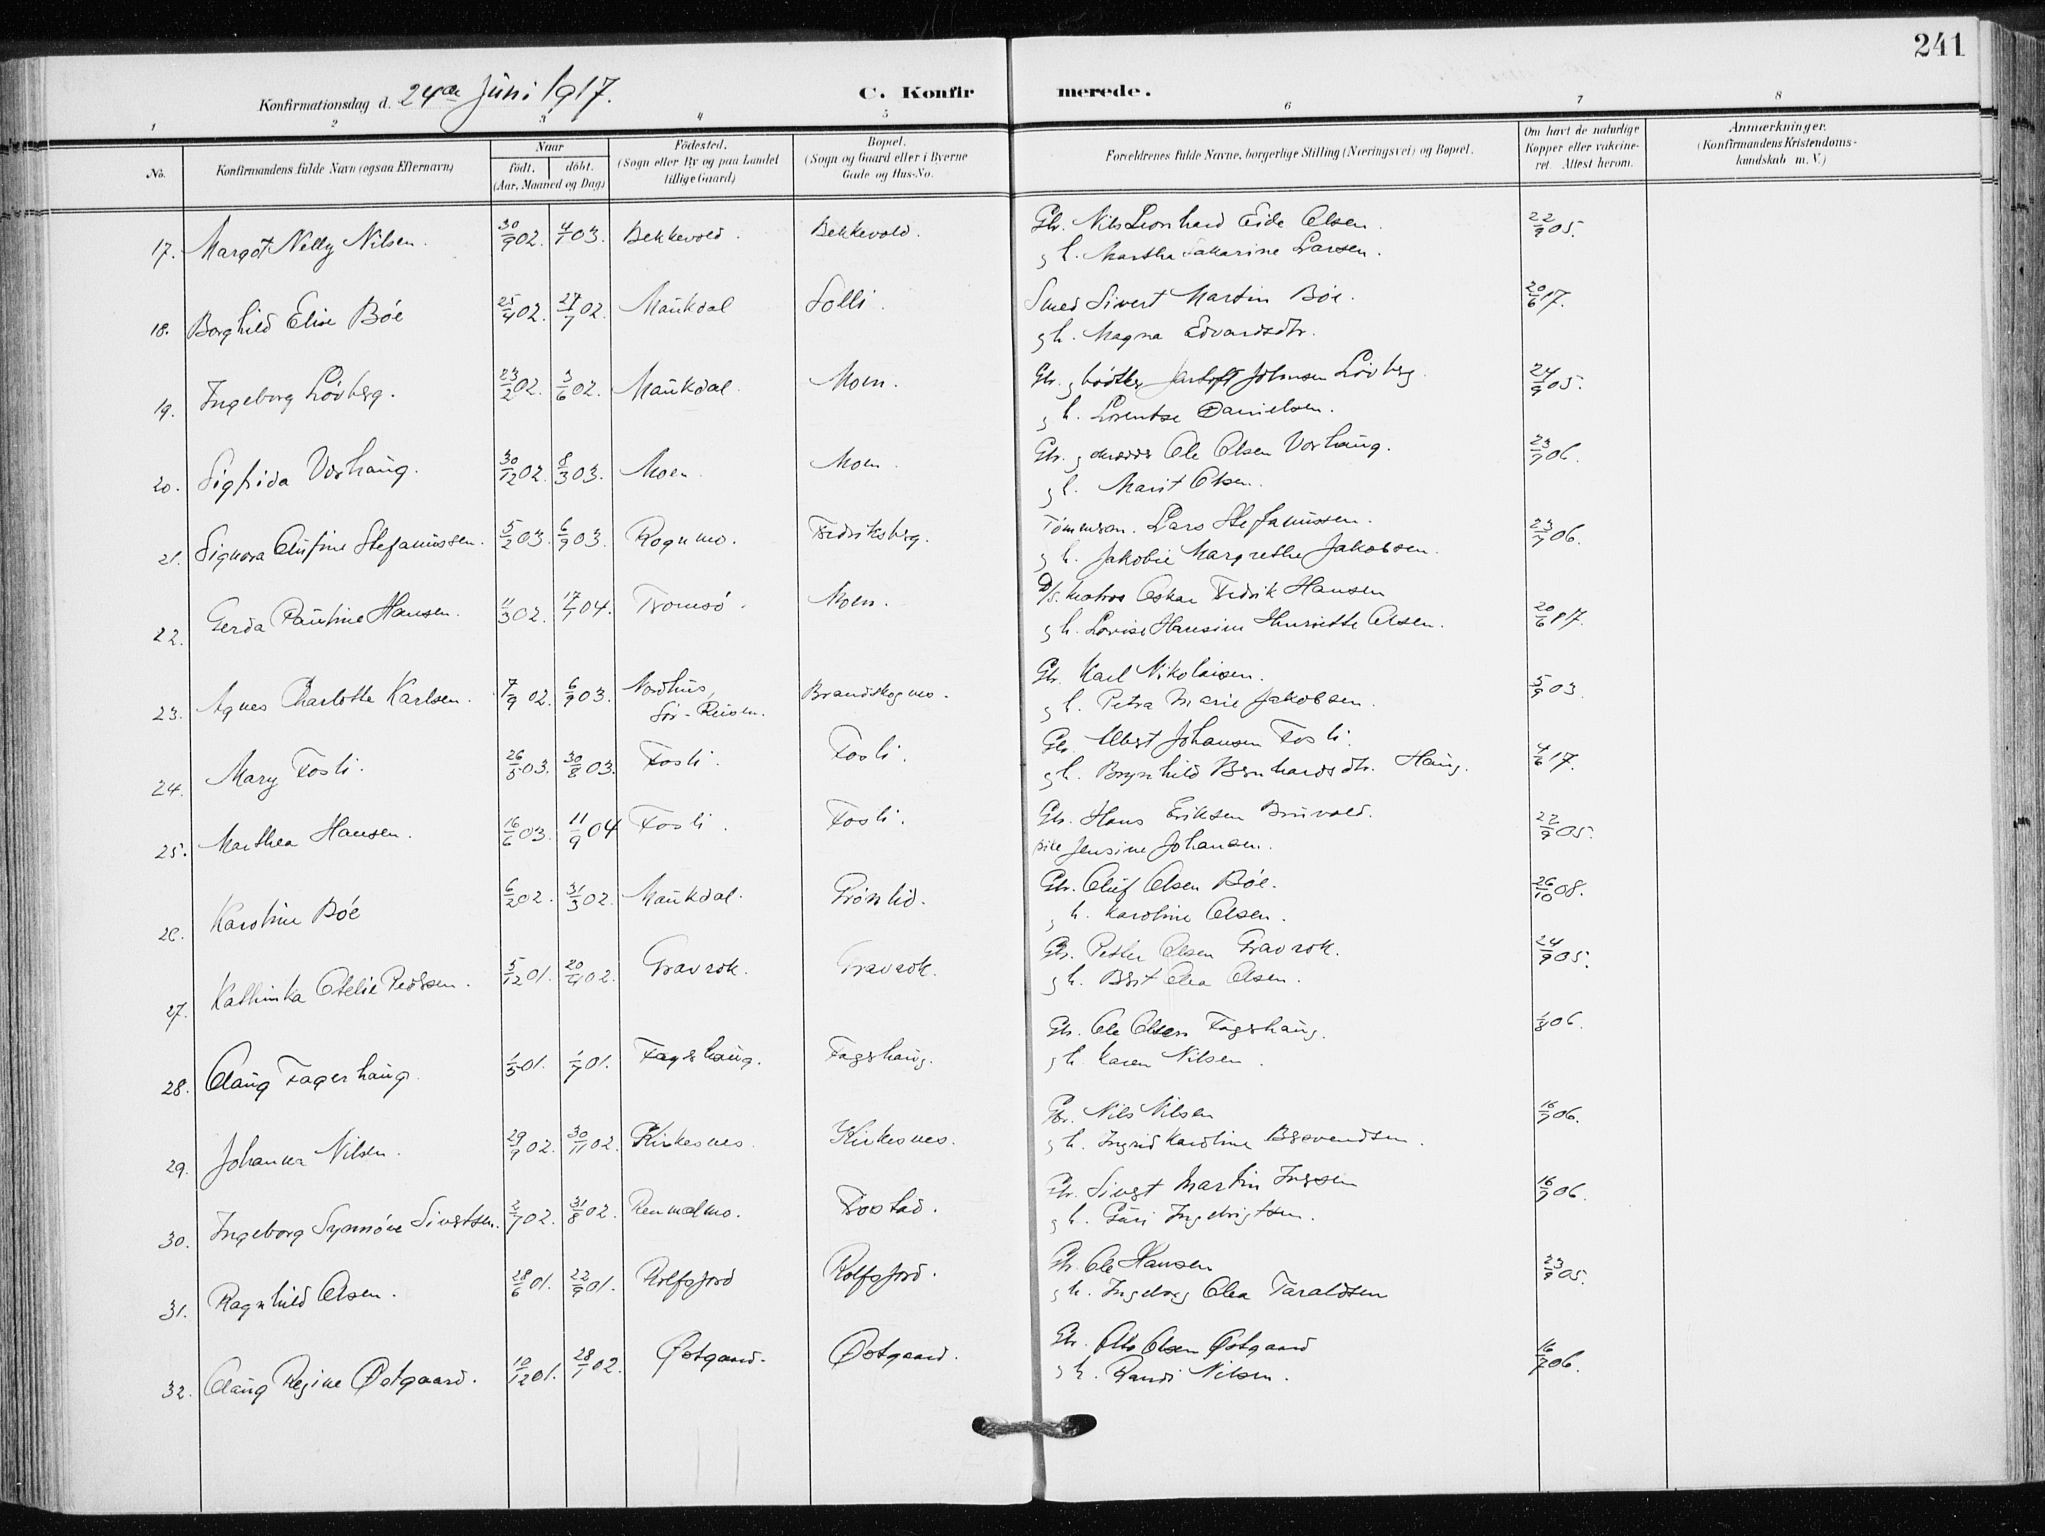 241
Konfirmationsdag d. 24de Juni 1917. C. Konfirmerede.
1 2 3 4 5 6 7 8
No. Konfirmandens fulde Navn (ogsaa Efternavn) Naar født. døbt. (Aar, Maaned og Dag) Fødested. (Sogn eller By og paa Landet tillige Gaard) Bopæl. (Sogn og Gaard eller i Byerne Gade og Hus-No. Forældrenes fulde Navne, borgerlige Stilling (Næringsvei) og Bopæl. Om havt de naturlige Kopper eller vakcineret. Attest herom. Anmærkninger. (Konfirmandens Kristendomskundskab m. V.)
17. Margot Nelly Nilsen. 30/9 02. 4/1 03. Bekkevold. Bekkevold. Gbr. Nils Leonhard Eide Olsen. 22/9 05.
g h. Martha Katharine Larsen.
18. Borghild Elise Böe 25/4 02. 27/7 02. Maukdal Solli. Smed Sivert Martin Böe. 20/6 17.
g h. Magna Edvardsdtr.
19. Ingeborg Lövberg. 23/2 02. 3/6 02. Maukdal. Moen. Gbr. Johnsen Lövberg 24/9 05.
g h. Lorentse Danielsen.
20. Sigfrida Vorhaug. 30/12 02. 8/3 03. Moen. Moen. Gbr. Ole Olsen Vorhaug. 23/7 06.
g h. Marit Olsen.
21. Signora Olufine Stefanussen. 5/2 03. 6/9 03. Rognmo. Fredriksberg. Tömmerm. Lars Stefanussen. 23/7 06.
g h. Jakobie Margrethe Jakobsen.
22. Gerda Pauline Hansen. 11/3 02. 17/1 04. Tromsö. Moen. D/S. Matros Oskar Fredrik Hansen 20/6 17.
g h. Lovise Hansine Henriette Olsen.
23. Agnes Charlotte Karlsen. 7/9 02. 6/9 03. Nordhus, Brandskogmo. Gbr. Karl Nikolaisen. 5/9 03.
Sör-Reisen. g h. Petra Marie Jakobsen.
24. Mary Fosli. 26/5 03. 30/8 03. Fosli. Fosli. Gbr. Albert Johansen Fosli. 4/6 17.
g h. Brynhild Bernhardsdtr. Haug.
25. Marthea Hansen. 16/6 03. 11/9 04 Fosli. Fosli. Gbr. Hans Eriksen Brüvold. 22/9 05.
Pike Jensine Johansen.
26. Karoline Böe 6/2 02. 31/3 02. Maukdal. Grönlid. Gbr. Oluf Olsen Böe. 26/10 08.
g h. Karoline Olsen.
27. Kathinka Otelie Pedersen. 5/12 01. 20/4 02. Gravrok. Gravrok. Gbr. Petter Olsen Gravrok. 24/9 05.
g h. Berit Olea Olsen.
28. Olaug Fagerhaug. 1/5 01. 1/7 01. Fagerhaug. Fagerhaug. Gbr. Ole Olsen Fagerhaug. 1/8 06.
g h. Karen Nilsen.
29. Johanna Nilsen. 29/9 02. 30/11 02. Kirkesnes. Kirkesnes. Gbr. Nils Nilsen 16/7 06.
g h. Ingrid Karoline Bersvendsen.
30. Ingeborg Synnöve Sivertsen. 2/7 02. 31/8 02. Renmælmo. Frostad. Gbr. Sivert Martin Ingersen 16/7 06.
g h. Guri Ingebrigtsen.
31. Ragnhild Olsen. 28/6 01. 22/9 01. Rolfsfjord Rolfsfjord. Gbr. Ole Hansen 23/9 05.
g h. Ingeborg Olea Taraldsen
32. Olaug Regine Østgaard. 10/12 01. 28/7 02. Østgaard. Østgaard. Gbr. Otto Olsen Østgaard 16/7 06.
g h. Randi Nilsen.